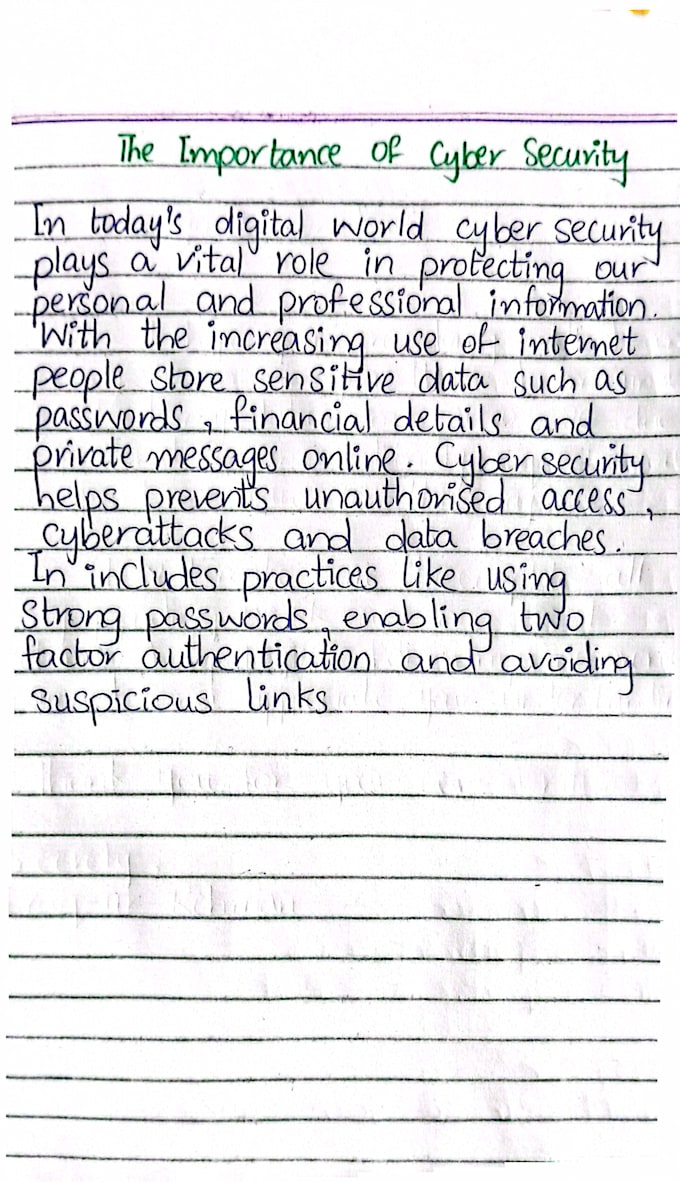 The Importance of Cyber Security
In today's digital world cyber security
plays a vital role in protecting our
personal and professional information.
With the increasing use of internet
people store sensitive data such as
passwords, financial details and
private messages online. Cyber security
helps prevents unauthorised access,
cyberattacks and data breaches.
In includes practices like using
strong passwords, enabling two
factor authentication and avoiding
suspicious links